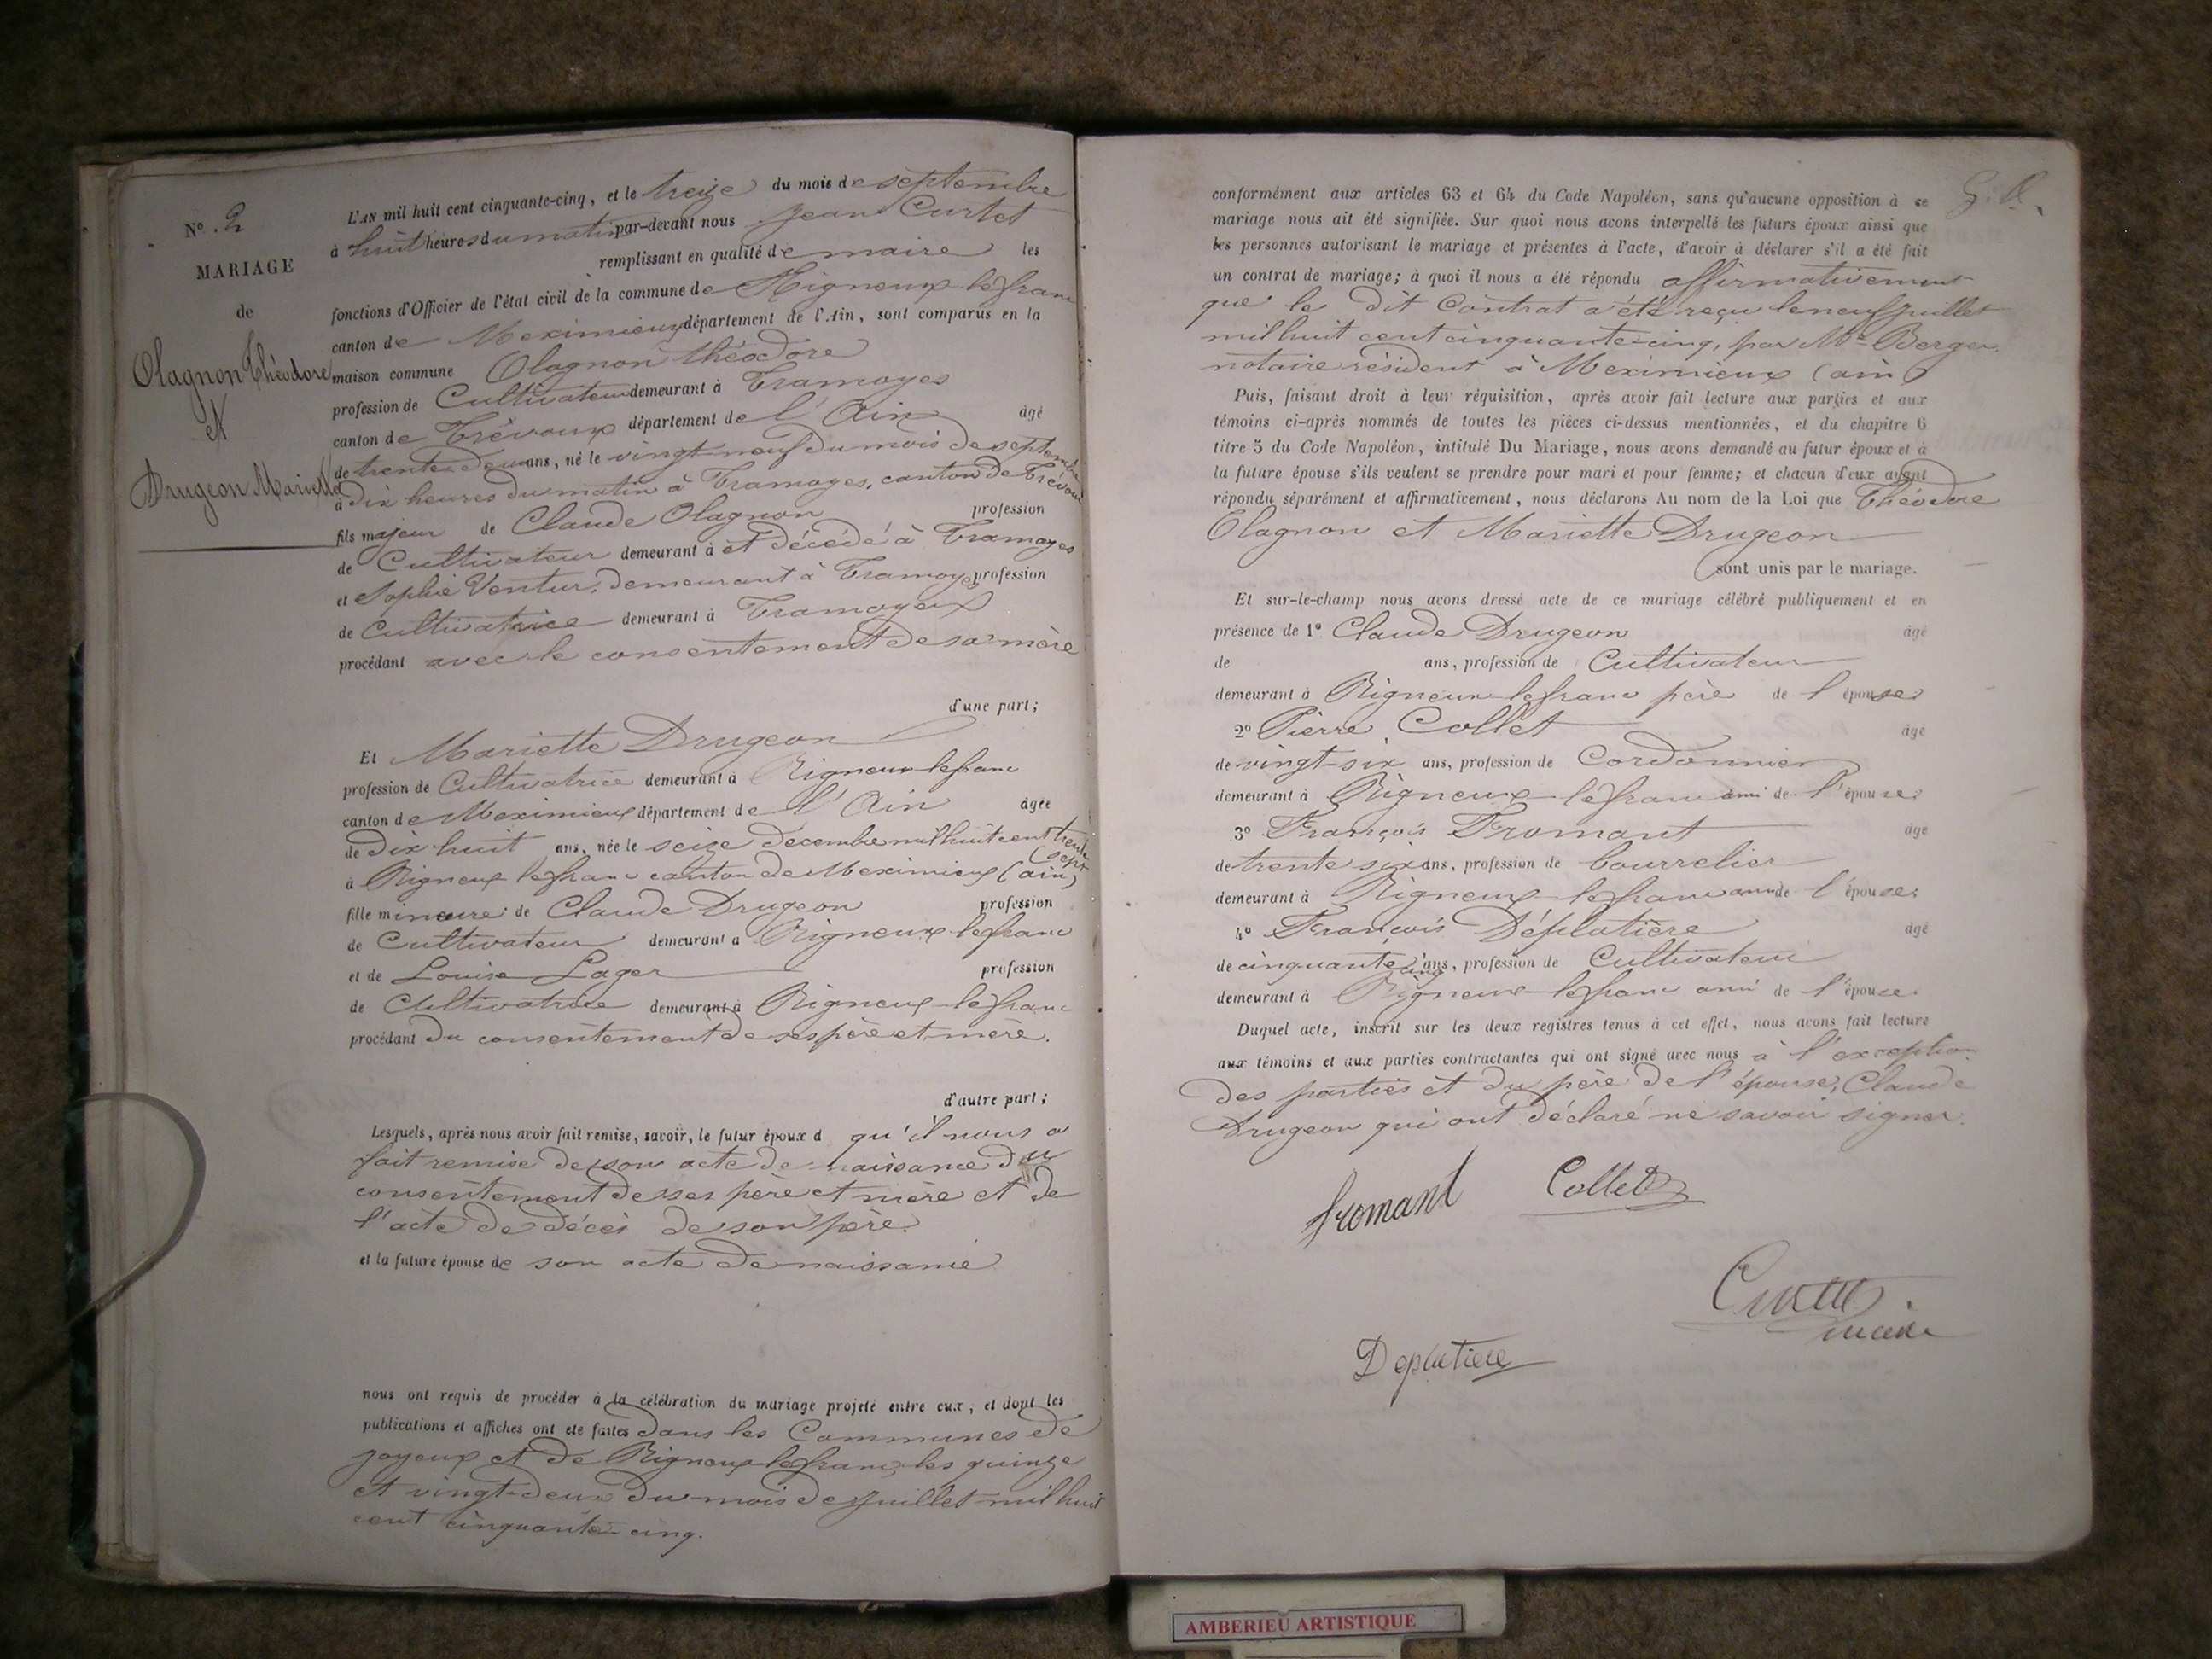 N° 2
MARIAGE
de
Olagnon Théodore
et
Drugeon Mariette
L'AN mil huit cent cinquante-cinq, et le treize du mois de septembre
à huit heures du matin par-devant nous Jean Curtet
remplissant en qualité de maire les
fonctions d'Officier de l'état civil de la commune de Rigneux le franc
canton de Meximieux département de l'Ain, sont comparus en la
maison commune Olagnon théodore
profession de Cultivateur demeurant à Tramoyes
canton de Trévoux département de l'Ain âgé
de trente deux ans, né le vingt-neuf du mois de septembre
à dix heures du matin à Tramoyes, canton de Trévoux
fils majeur de Claude Olagnon profession
de Cultivateur demeurant à et décédé à Tramoyes
et Sophie Ventur, demeurant à Tramoyes profession
de Cultivatrice demeurant à Tramoyes
procédant avec le consentement de sa mère
d'une part;
Et Mariette Drugeon
profession de Cultivatrice demeurant à Rigneux le franc
canton de Meximieux département de l'Ain âgée
de dix huit ans, née le seize décembre mil huit cent trente sept
à Rigneux le franc canton de Meximieux (ain)
fille mineure de Claude Drugeon profession
de Cultivateur demeurant à Rigneux le franc
et de Louise Lager profession
de Cultivatrice demeurant à Rigneux le franc
procédant du consentement de ses père et mère.
d'autre part;
Lesquels, après nous avoir fait remise, savoir, le futur époux d qu'il nous a
fait remise de son acte de naissance du
consentement de ses père et mère et de
l'acte de décès de son père.
et la future épouse de son acte de naissance
nous ont requis de procéder à la célébration du mariage projeté entre eux, et dont les
publications et affiches ont été faites dans les Communes de
joyeux et de Rigneux le franc, les quinze
et vingt-deux du mois de juillet mil huit
cent cinquante-cinq.
conformément aux articles 63 et 64 du Code Napoléon, sans qu'aucune opposition à ce
mariage nous ait été signifiée. Sur quoi nous avons interpellé les futurs époux ainsi que
les personnes autorisant le mariage et présentes à l'acte, d'avoir à déclarer s'il a été fait
un contrat de mariage; à quoi il nous a été répondu affirmativement
que le dit Contrat a été reçu le neuf juillet
mil huit cent cinquante-cinq, par Me Berger
notaire résident à Meximieux (ain)
Puis, faisant droit à leur réquisition, après avoir fait lecture aux parties et aux
témoins ci-après nommés de toutes les pièces ci-dessus mentionnées, et du chapitre 6
titre 5 du Code Napoléon, intitulé Du Mariage, nous avons demandé au futur époux et à
la future épouse s'ils veulent se prendre pour mari et pour femme; et chacun d'eux ayant
répondu séparément et affirmativement, nous déclarons Au nom de la Loi que Théodore
Olagnon et Mariette Drugeon
sont unis par le mariage.
Et sur-le-champ nous avons dressé acte de ce mariage célébré publiquement et en
présence de 1° Claude Drugeon âgé
de ans, profession de Cultivateur
demeurant à Rigneux le franc père de l'épouse
2° Pierre Collet âgé
de vingt-six ans, profession de Cordonnier
demeurant à Rigneux le franc ami de l'épouse
3° François Fromant âgé
de trente six ans, profession de bourrelier
demeurant à Rigneux le franc ami de l'épouse
4° François Déplatière âgé
de cinquante cinq ans, profession de Cultivateur
demeurant à Rigneux le franc ami de l'épouse
Duquel acte, inscrit sur les deux registres tenus à cet effet, nous avons fait lecture
aux témoins et aux parties contractantes qui ont signé avec nous à l'exception
des parties et du père de l'épouse, Claude
Drugeon qui ont déclaré ne savoir signer.
fromant Collet
Curtet
maire
Deplatiere
AMBERIEU ARTISTIQUE